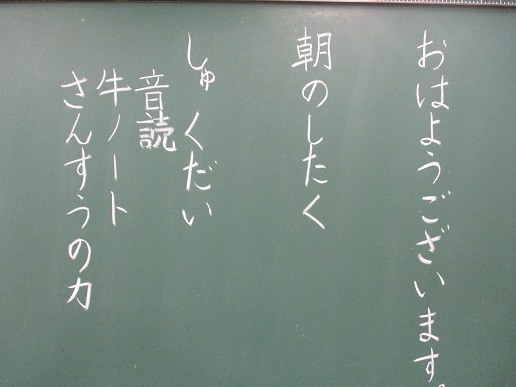 おはようございます。
朝のしたく
しゅくだい
音読
牛ノート
さんすうの力